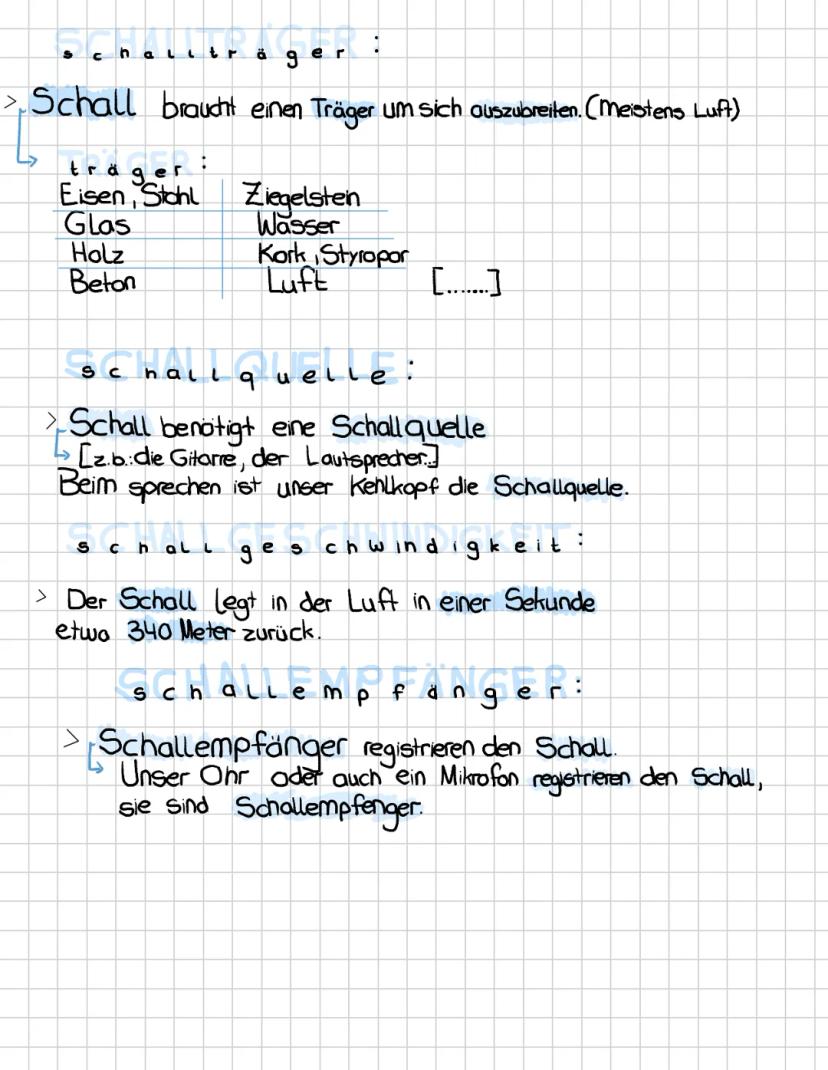 schallträger:
> Schall braucht einen Träger um sich auszubreiten. (Meistens Luft)
träger:
Eisen, Stahl Ziegelstein
Glas Wasser
Holz Kork, Styropor
Beton Luft [.......]
schallquelle:
> Schall benötigt eine Schallquelle
[z.b.: die Gitarre, der Lautsprecher.]
Beim sprechen ist unser Kehlkopf die Schallquelle.
schallgeschwindigkeit:
> Der Schall legt in der Luft in einer Sekunde
etwa 340 Meter zurück.
schallempfänger:
> Schallempfänger registrieren den Schall.
Unser Ohr oder auch ein Mikrofon registrieren den Schall,
sie sind Schallempfenger.